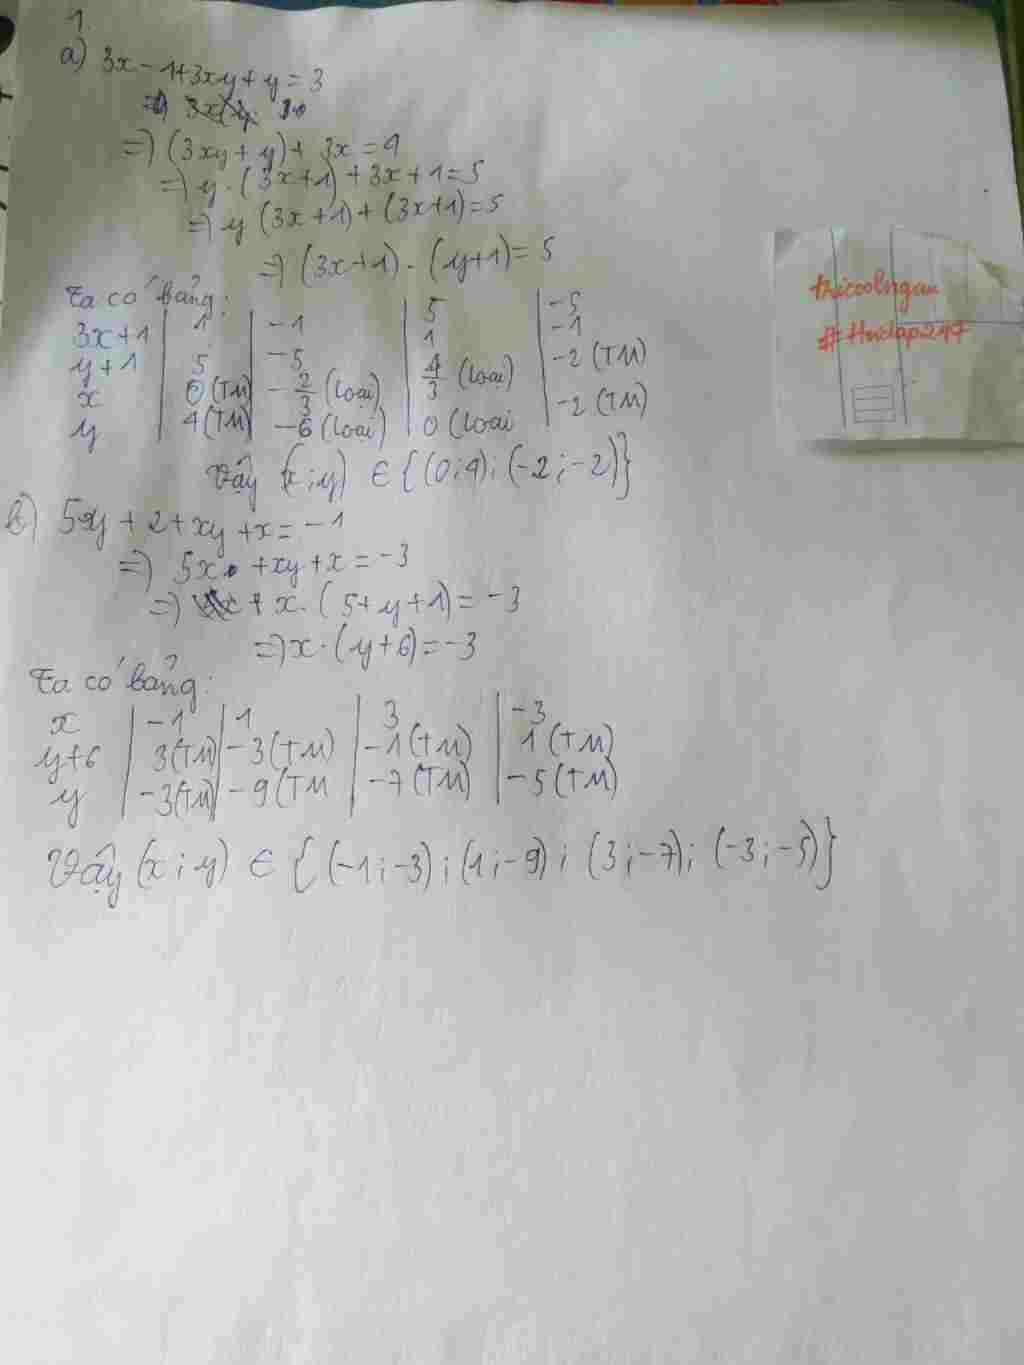 1.
a) 3x - 1 + 3xy + y = 3
=> (3xy + y) + 3x = 4
=> y . (3x+1) + 3x + 1 = 5
=> y (3x+1) + (3x+1) = 5
=> (3x+1) . (y+1) = 5
Ta có bảng:
3x+1 | 1 | -1 | 5 | -5
y+1 | 5 | -5 | 1 | -1
x | 0 (TM) | -2/3 (loại) | 4/3 (loại) | -2 (TM)
y | 4 (TM) | -6 (loại) | 0 (loại | -2 (TM)
Vậy (x; y) ∈ {(0; 4); (-2; -2)}
b) 5y + 2 + xy + x = -1
=> 5x + xy + x = -3
=> x . (5 + y + 1) = -3
=> x . (y + 6) = -3
Ta có bảng:
x | -1 | 1 | 3 | -3
y+6 | 3 (TM) | -3 (TM) | -1 (TM) | 1 (TM)
y | -3 (TM) | -9 (TM | -7 (TM) | -5 (TM)
Vậy (x; y) ∈ {(-1; -3); (1; -9); (3; -7); (-3; -5)}
#Hoidap247